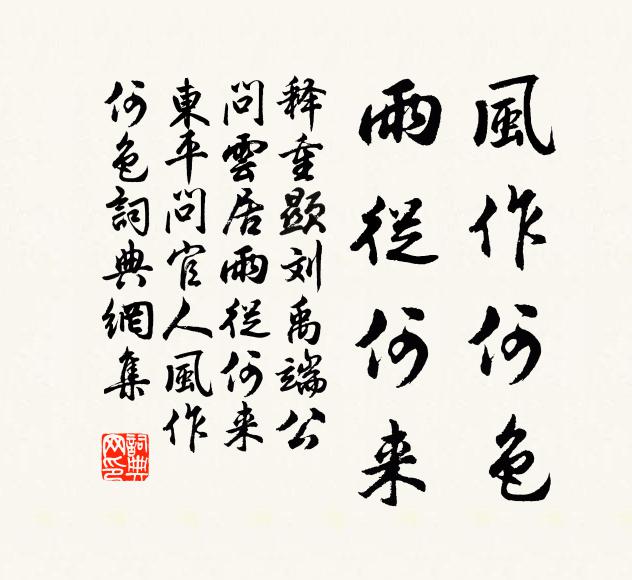 風作何色
雨從何来
释重顯刘禹端公
問雲居雨從何来
東平問官人風作
何色詞典網集
詞典网印